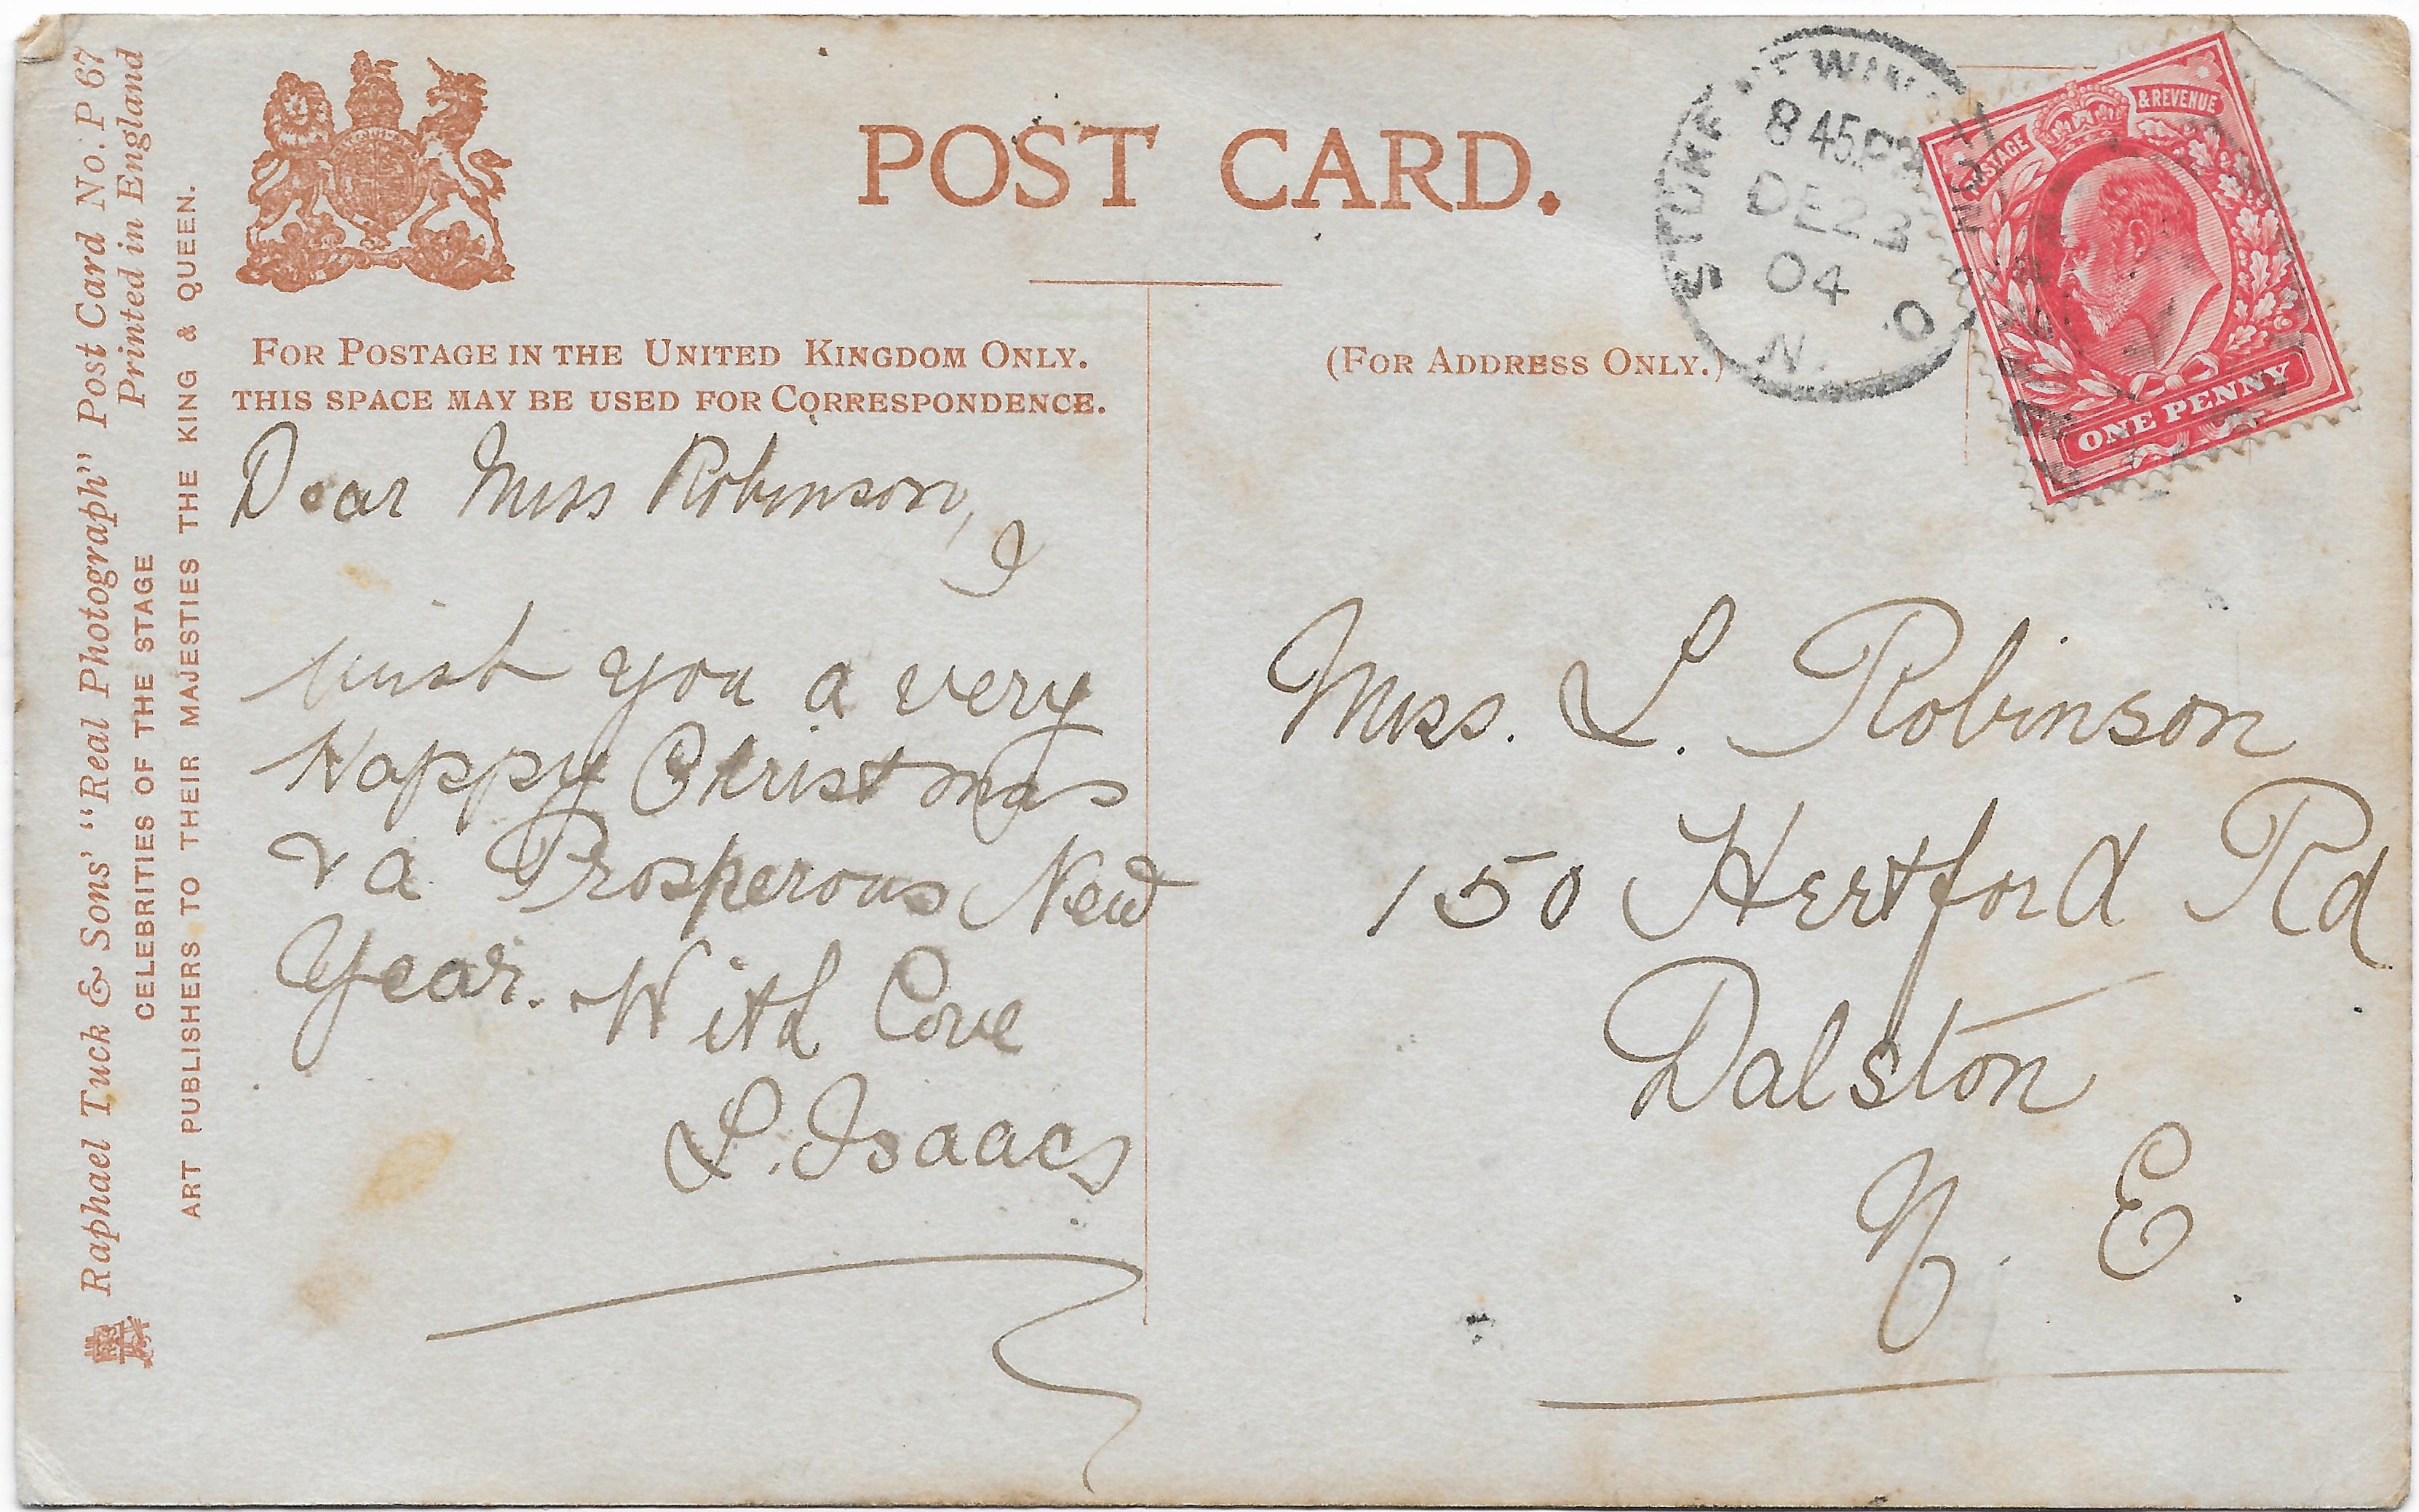 Raphael Tuck & Sons' "Real Photograph" Post Card No. P 67
Printed in England
CELEBRITIES OF THE STAGE
ART PUBLISHERS TO THEIR MAJESTIES THE KING & QUEEN.
POST CARD.
FOR POSTAGE IN THE UNITED KINGDOM ONLY.
THIS SPACE MAY BE USED FOR CORRESPONDENCE.
(FOR ADDRESS ONLY.)
STOKE NEWINGTON
8 45PM
DE23
04
N. O
POSTAGE & REVENUE
ONE PENNY
Dear Miss Robinson,
I
wish you a very
Happy Christmas
& a Prosperous New
Year. With Love
L. Isaacs
Miss. L. Robinson
150 Hertford Rd
Dalston
N. E.